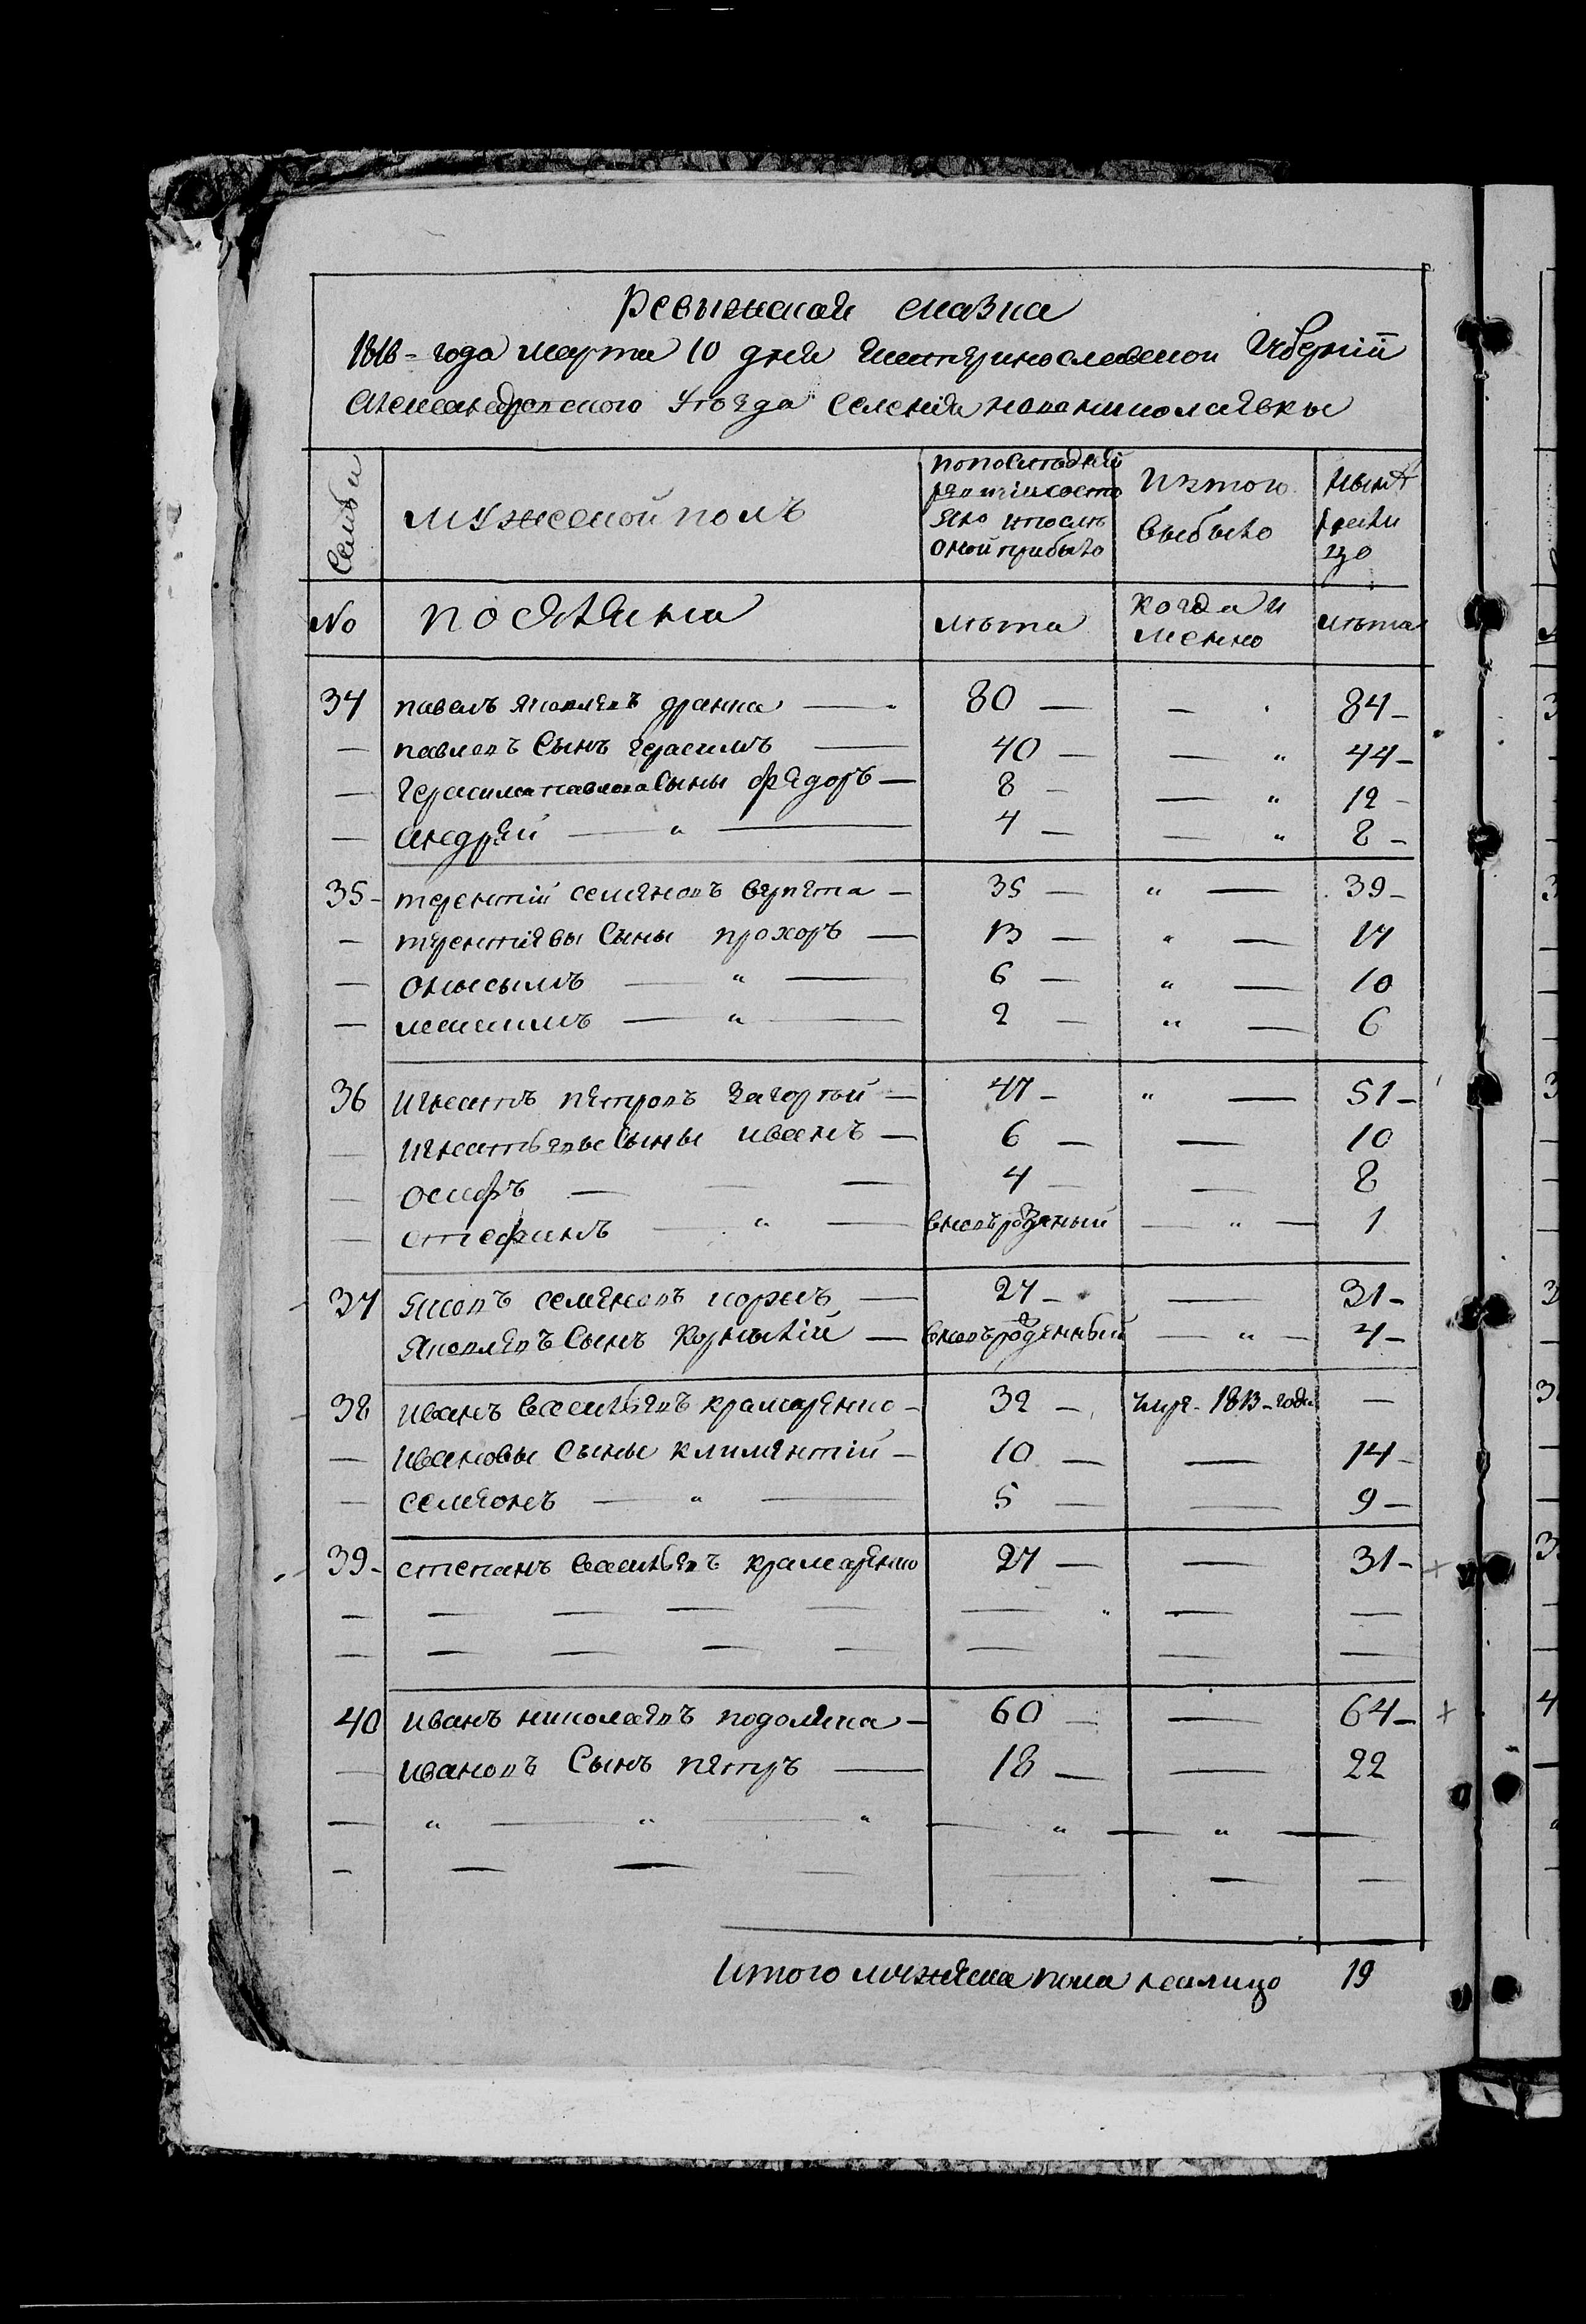 Ревыжская сказка
1816 = года марта 10 дня Екатеринославской Губерніи
Александровского Уѣзда Селенія новониколаевки
Семьи
мужеской полъ
по последней ревизіи состо яло и после оной прибыло
Ис того выбыло
Нынѣ на лицо
No
поселяна
лѣта
когда и менно
лѣта
34 павелъ яковлевъ дранка — 80 — — 84 –
— павловъ Сынъ герасимъ — 40 — — „ 44 –
— Герасима павлова Сыны федоръ — 8 – — „ 12 –
— андрей — „ — 4 — — „ 8 –
35 – терентій семеновъ верета – 35 — „ — 39 –
— терентіевы Сыны прохоръ — 13 — „ — 17
— онысымъ — „ — 6 — „ — 10
— максимъ — „ — 2 — „ — 6
36 игнатъ петровъ Загортый — 47 – „ — 51 –
— игнатьевы Сыны иванъ — 6 — — 10
— осифъ — — — 4 — — 8
— стефанъ — „ — вновъ рожденый — „ — 1
37 яковъ семеновъ коржъ — 27 – — 31 –
яковлевъ Сынъ Корнѣлій — вновъ рожденный — „ — 4 –
38 иванъ васильевъ крамаренко – 32 – умре – 1813 – года —
— ивановы Сыны климентій – 10 — — 14 –
— семіонъ — „ — 5 — — 9 –
39 – степанъ васильевъ крамаренко 27 — — 31 –
40 иванъ николаевъ подоляка – 60 — — 64 –
— ивановъ Сынъ петръ — 18 — — 22
Итого мужеска пола налицо 19